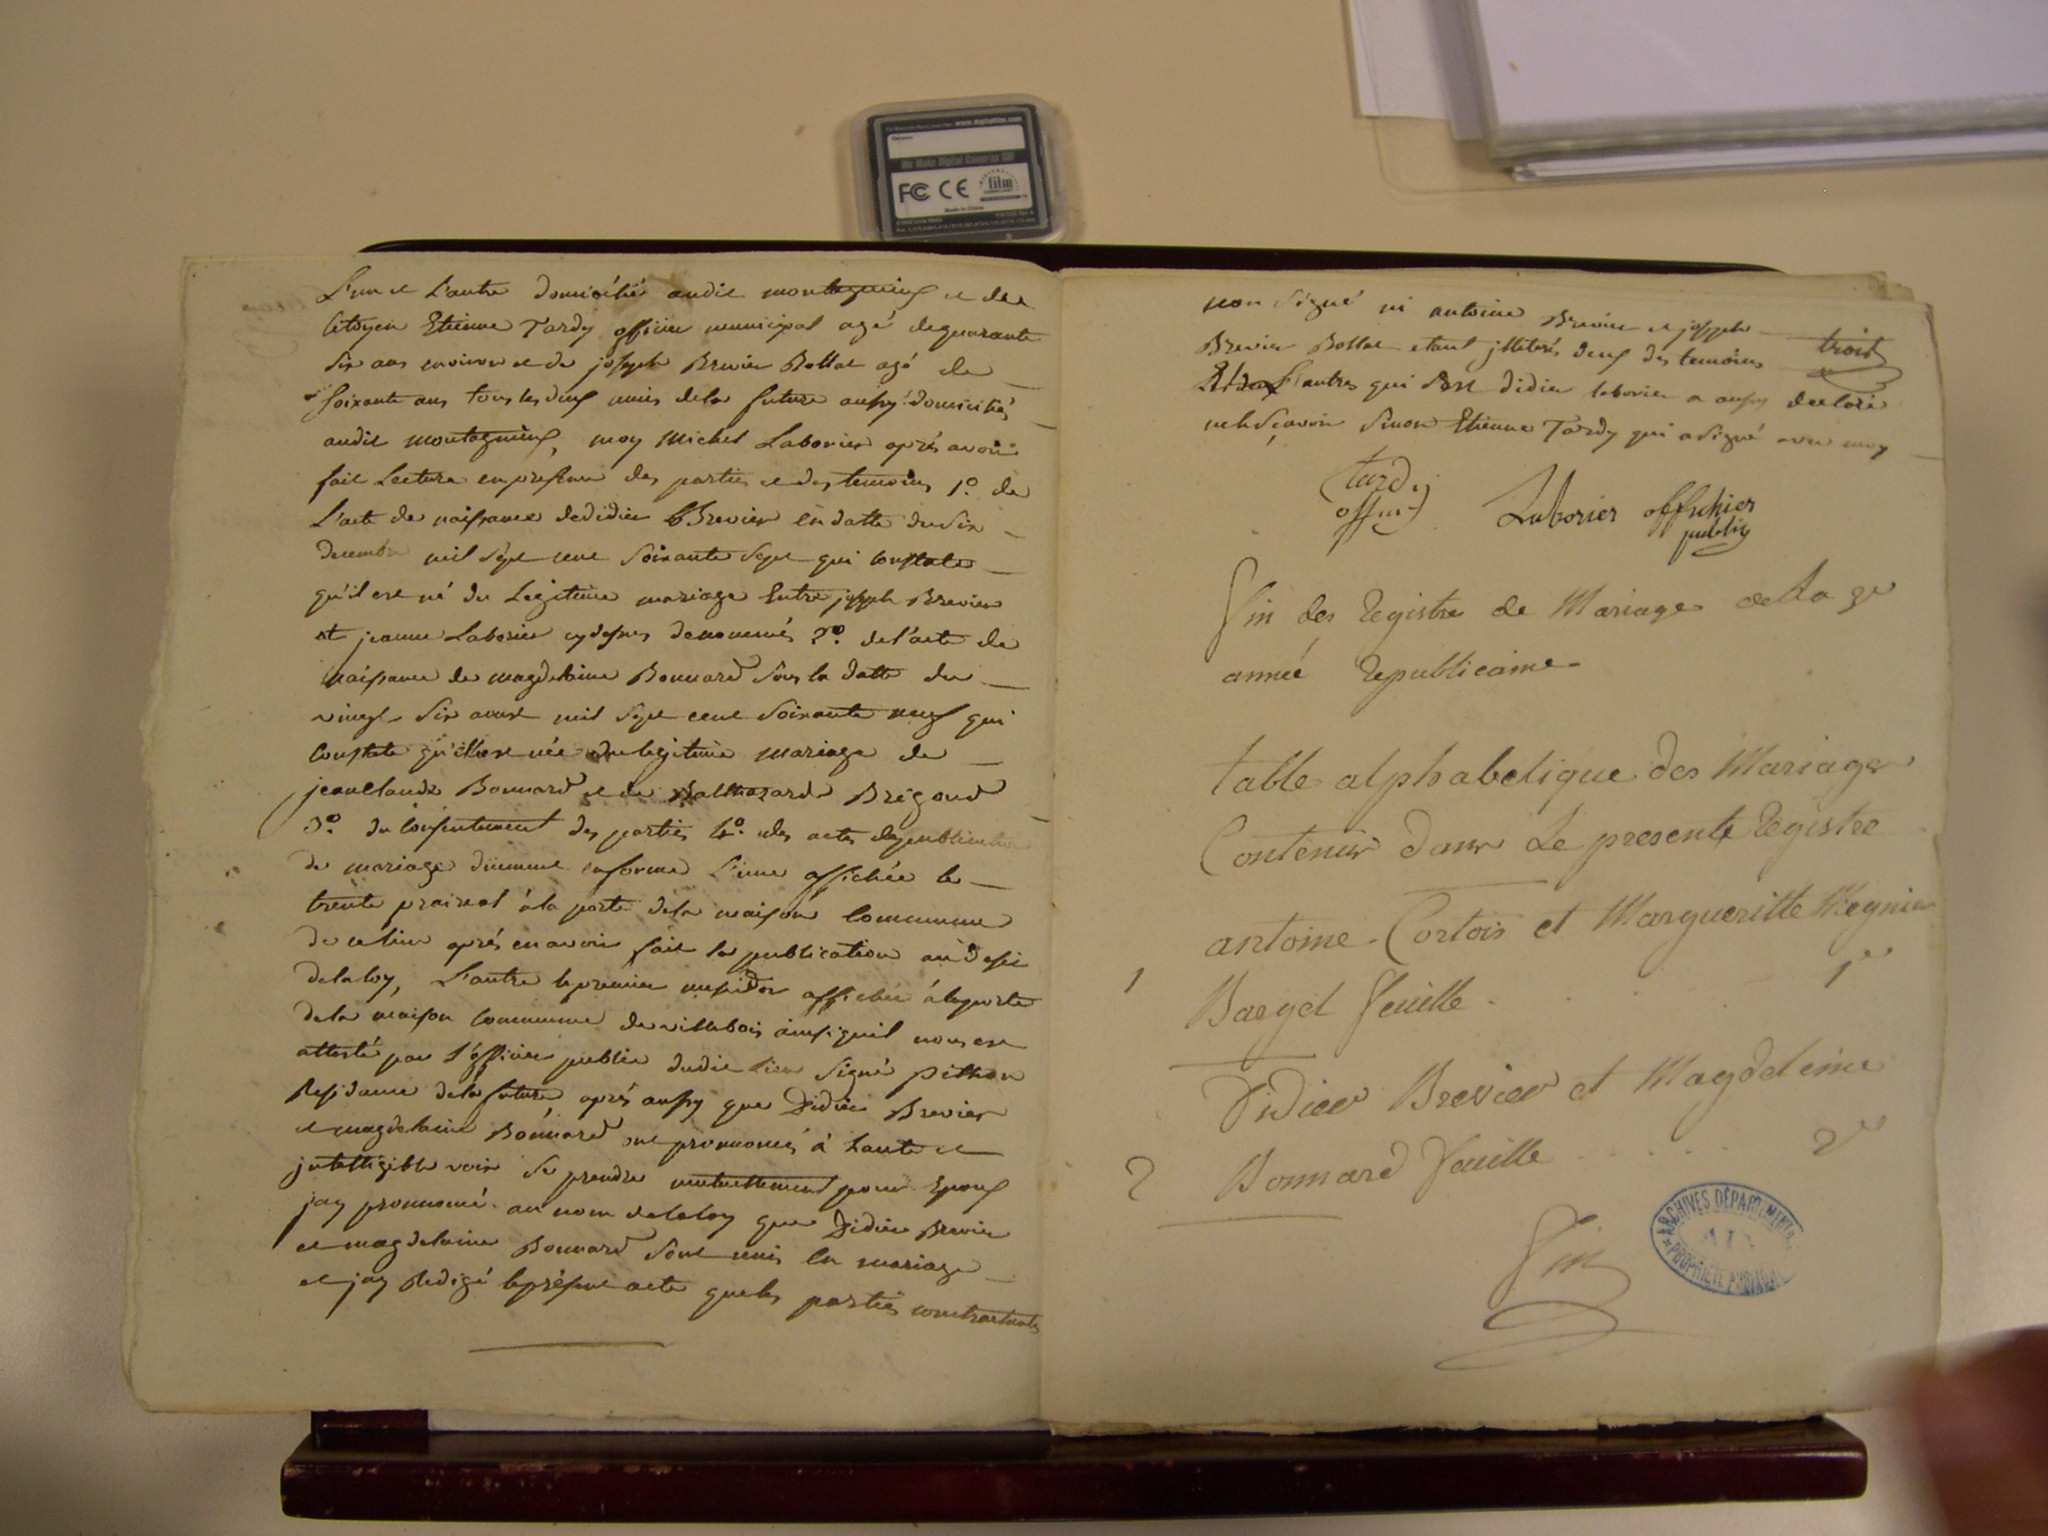 www.digitalfilm.com
We Make Digital Cameras GO
FC CE film
Made in China
L'un et L'autre domicilié audit montagnieu et de
Citoyen Etienne Tardy officier municipal agé dequarante
Six ans environ et de joseph Brevier Bollat agé de
Soixante ans tous les deux amis dela future aussy domiciliés
audit montagnieu, moy Michel Laborier aprés avoir
fait Lecture en presence des parties et des temoins 1°. de
L'acte de naissance dedidier Brevier en datte du Six
decembre mil Sept cent Soixante Sept qui constate
qu'il est né du Legitime mariage Entre joseph Brevier
et jeanne Laborier cydessus denommés 2°. de l'acte de
Naissance de magdelaine Bonnard Sous la datte du
vingt Six aoust mil Sept cent Soixante neuf qui
Constate qu'elle est née du legitime mariage de
jeanClaude Bonnard et de Balthazarde Brégand
3°. du Consentement des parties 4°. des actes de publication
de mariage duement enforme L'une affichée le
trente prairial à la porte dela maison Commune
de ce lieu aprés en avoir fait la publication au desir
delaloy, L'autre le premier messidor affichée à la porte
dela maison Commune de villebois ainsi qu'il nous est
attesté par L'officier public dudit Lieu Signé pithon
Residance dela future aprés aussy que Didier Brevier
et magdelaine Bonnard ont prononcés à haute et
jntelligible voix Se prendre mutuellement pour Epoux
jay prononcé au nom delaloy que Didier Brevier
et magdelaine Bonnard Sont unis en mariage
et jay Redigé le présent acte que les parties contractantes
non Signé ni antoine Brevier et joseph
Brevier Bollat etant jlliterés deux des temoins trois
L'autres qui Sont didier laborier a aussy declaré
nele Sçavoir Sinon Etienne Tardy qui a Signé avec moy
tardy
off
Laborier offichier
public
fin des Registre de Mariage de La 3e
année Republicaine
table alphabetique des Mariages
Contenus dans Le presente Registre
antoine Cortois et Margueritte Megnier
1 Baeyet feuille 1re
Didier Brevier et Magdeleine
2 Bonnard feuille 2e
fin
ARCHIVES DÉPARTEMENTALES
AIN
PROPRIÉTÉ PUBLIQUE